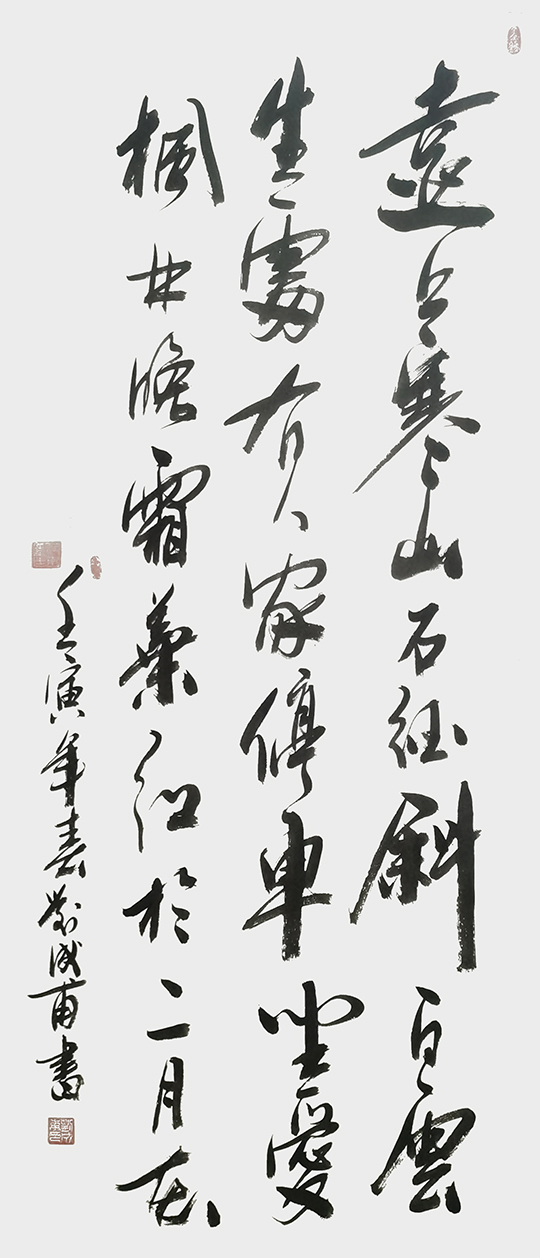 遠上寒山石徑斜白雲
生處有人家停車坐愛
楓林晚霜葉紅於二月花
壬寅年春劉書